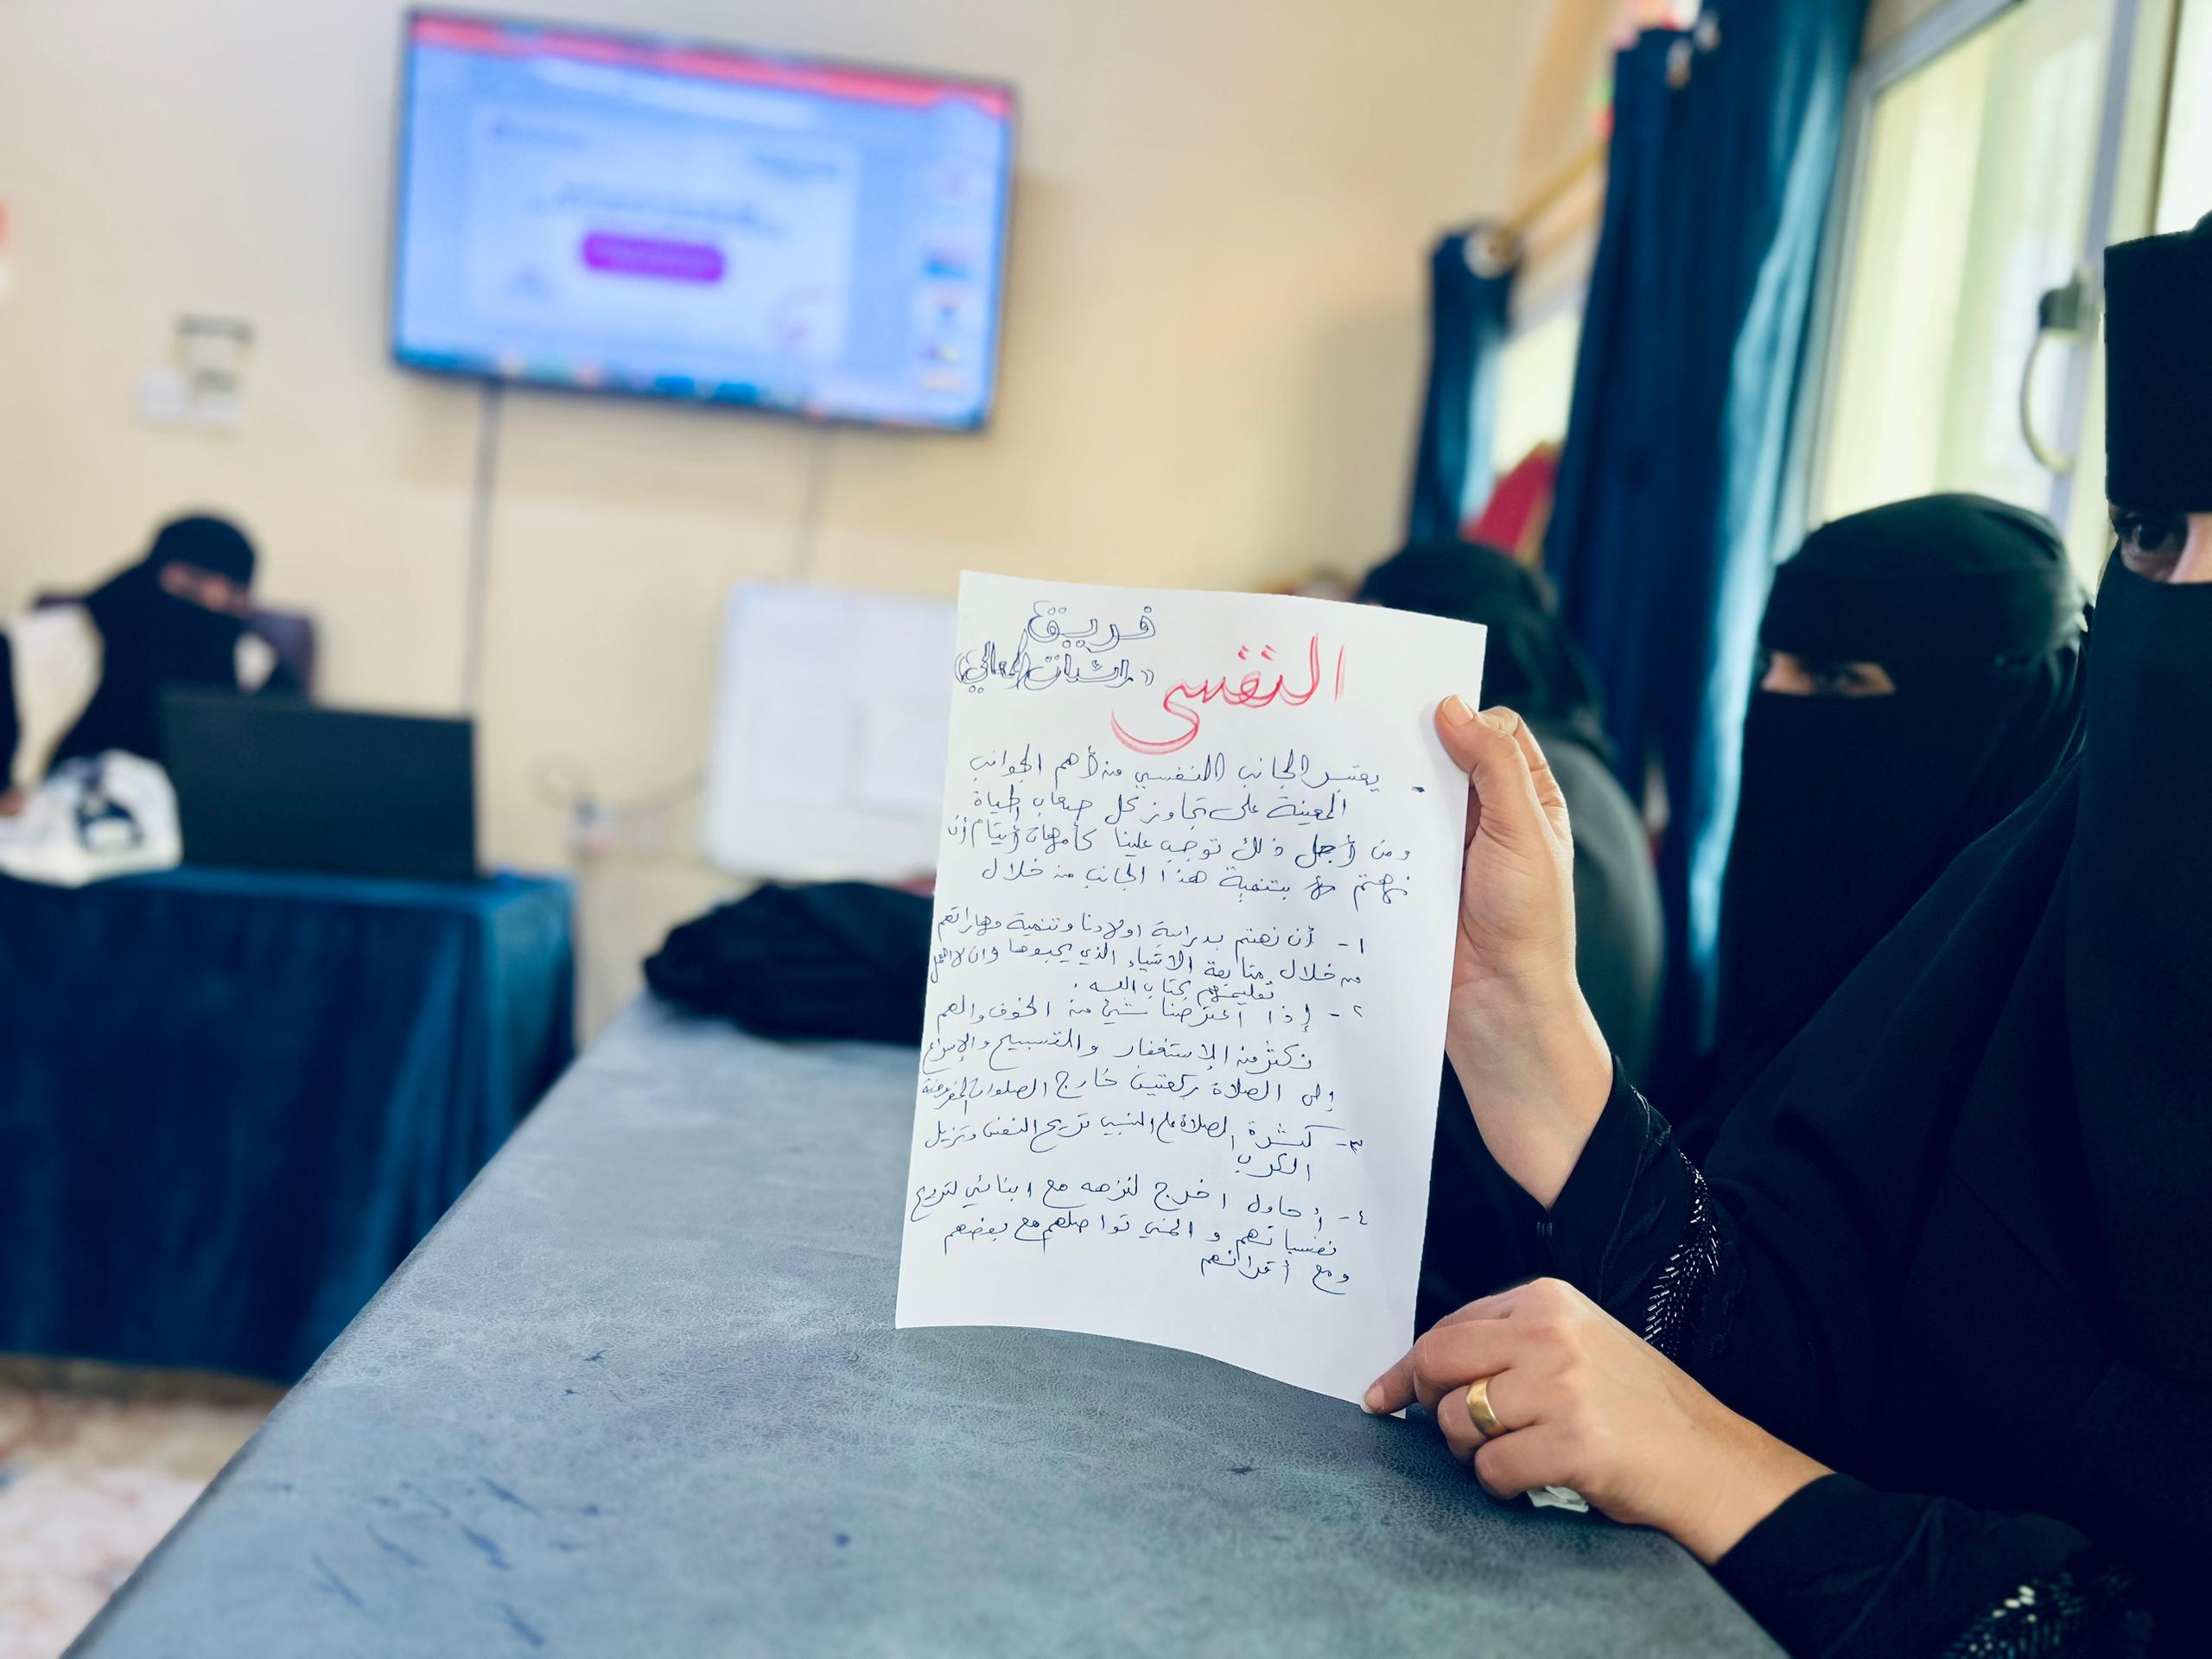 فريق
النفسي
يعتبر الجانب النفسي من أهم الجوانب
المعينة على تجاوز كل صعاب الحياة
ومن أجل ذلك توجب علينا كأمهات أيتام أن
نهتم بتنمية هذا الجانب من خلال
١- أن نهتم بدراسة اولادنا وتنمية مهاراتهم
من خلال متابعة الاشياء الذي يحبوها وان لا نهمل
تعليمهم كتاب الله.
٢- إذا اعترضنا شيئ من الخوف والهم
نكثر من الإستغفار والتسبيح والإسراع
إلى الصلاة ركعتين خارج الصلوات المفروضة
٣- كثرة الصلاة على النبي تريح النفس وتزيل
الكرب
٤- أحاول اخرج لنزهه مع ابنائي لتروح
نفسياتهم و تواصلهم مع بعضهم
ومع أقرانهم